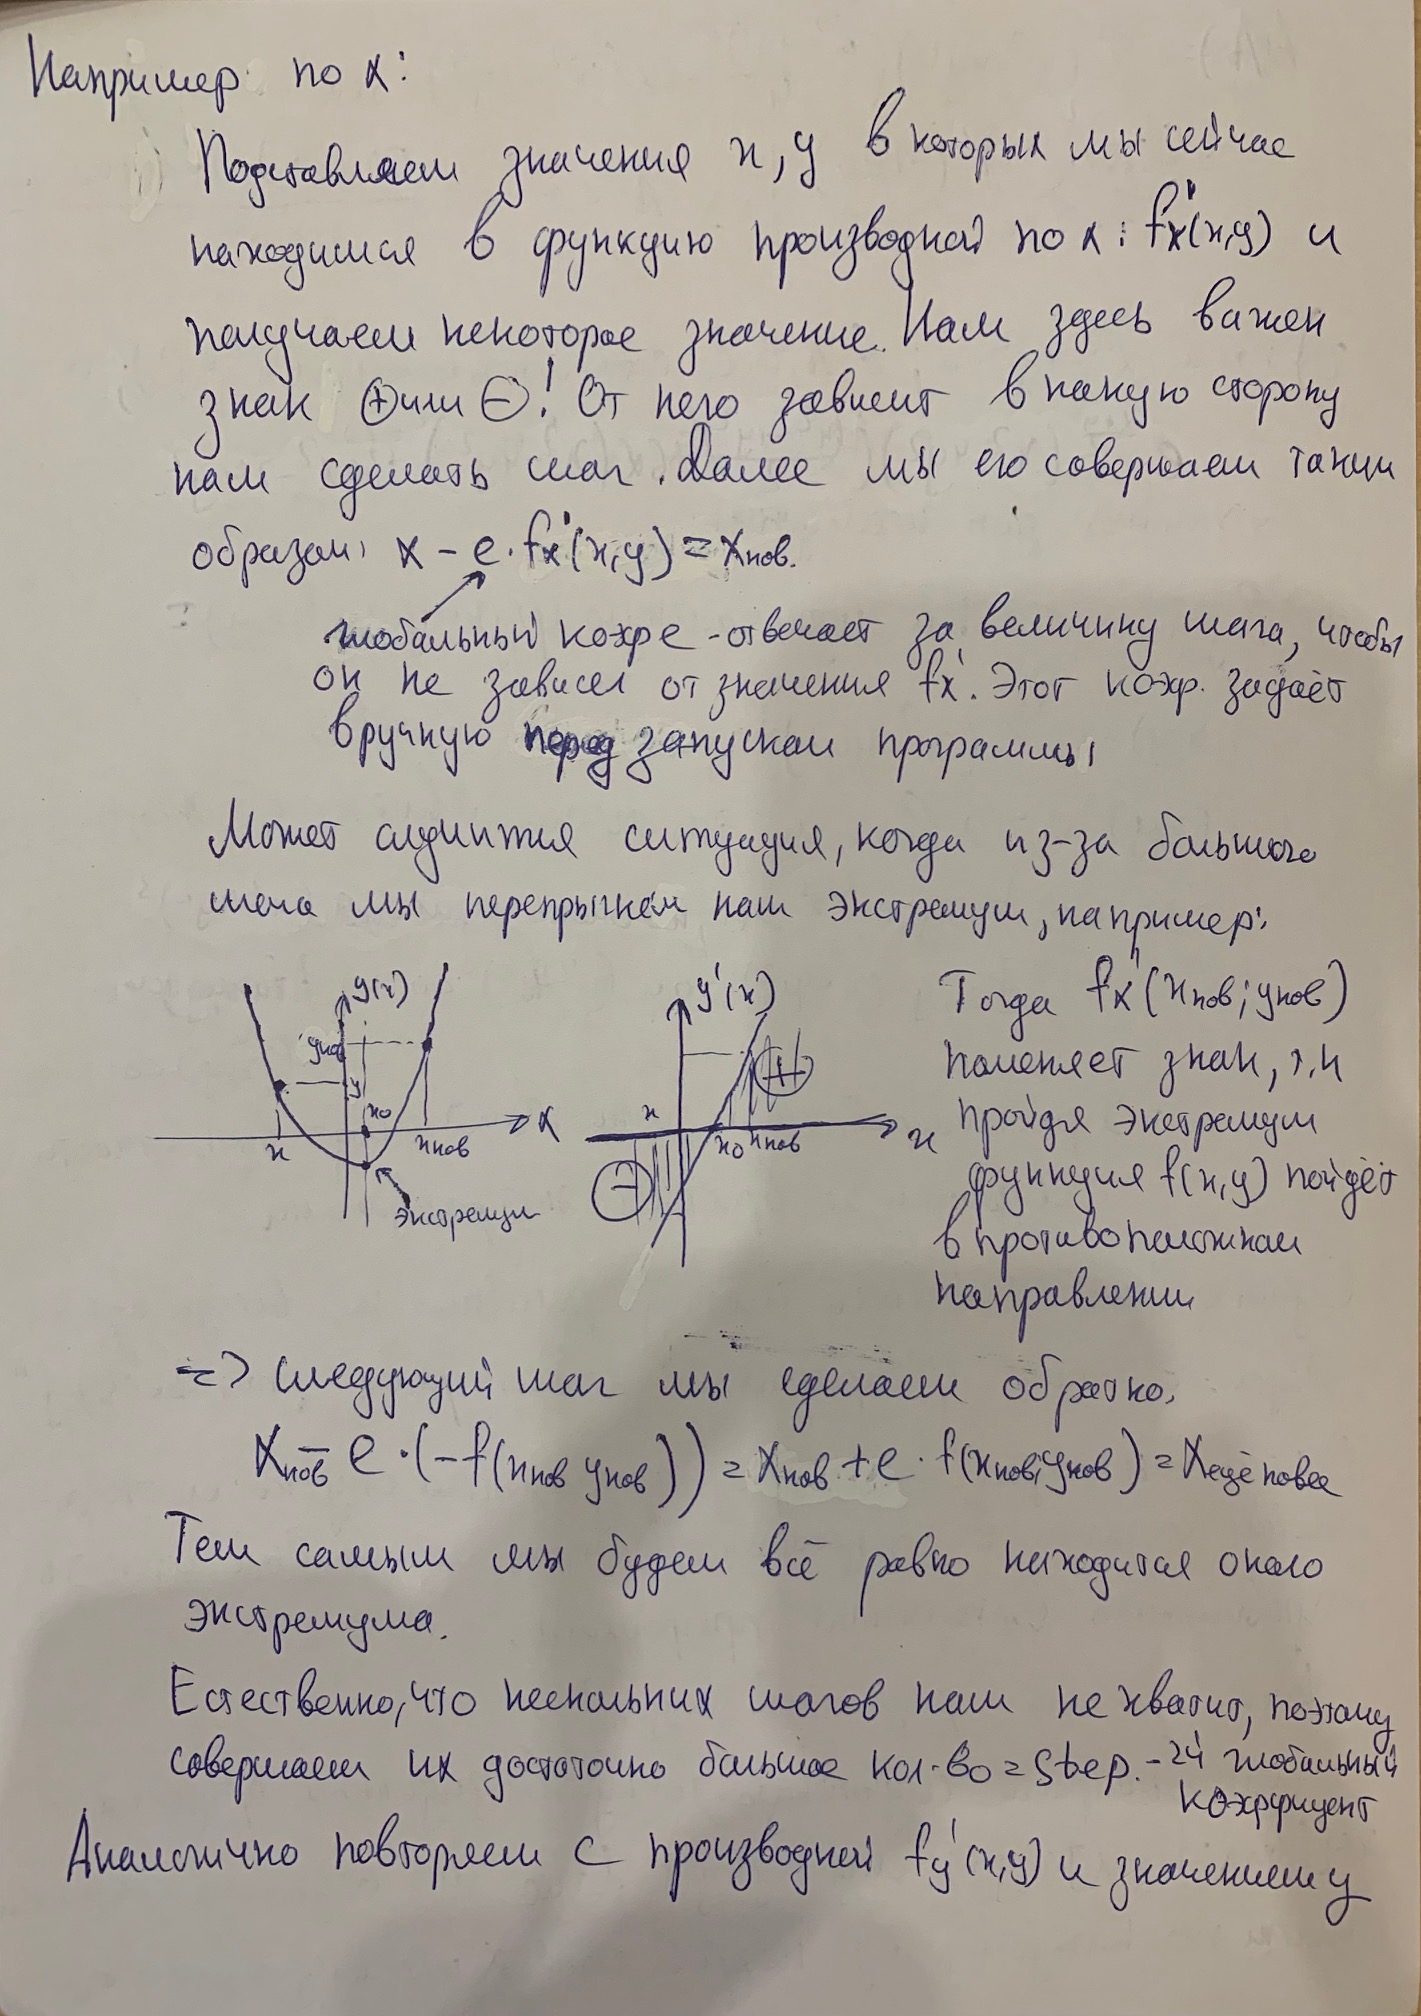 Например по x:
Подставляем значения x, y в которых мы сейчас
находимся в функцию производной по x: fx'(x,y) и
получаем некоторое значение. Нам здесь важен
знак ⊕ или ⊖! От него зависит в какую сторону
нам сделать шаг. Далее мы его совершаем таким
образом: x - e · fx'(x,y) = xнов.
глобальный коэф e - отвечает за величину шага, чтобы
он не зависел от значения fx'. Этот коэф. задаёт
вручную перед запуском программы
Может случится ситуация, когда из-за большого
шага мы перепрыгнем наш экстремум, например:
y(x)
yнов
y
x0
x
xнов
x
экстремум
y'(x)
+
x
x0
xнов
x
-
Тогда fx'(xнов; yнов)
поменяет знак, т.к
пройдя экстремум
функция f(x,y) пойдёт
в противоположном
направлении
=> следующий шаг мы сделаем обратно.
xнов - e · (-f(xнов yнов)) = xнов + e · f(xнов; yнов) = xещё новее
Тем самым мы будем всё равно находится около
экстремума.
Естественно, что нескольких шагов нам не хватит, поэтому
совершаем их достаточно большое кол-во = step. - 2й глобальный
коэффицент
Аналогично повторяем с производной fy'(x,y) и значением y